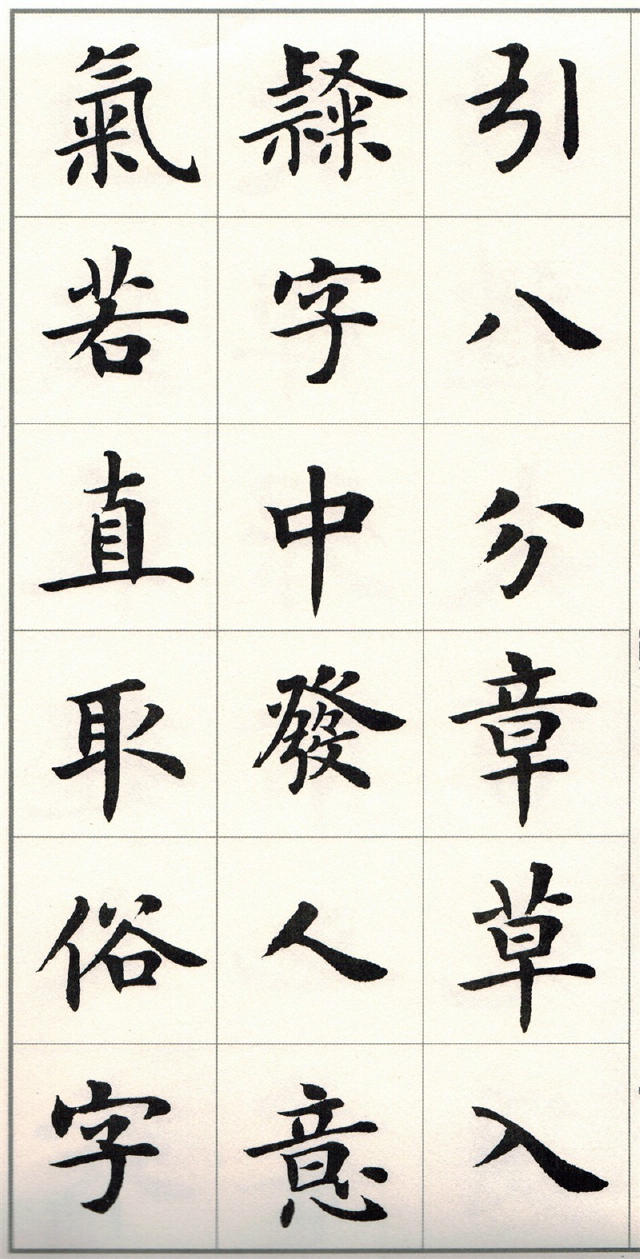 引八分章草入
隸字中發人意
氣若直取俗字